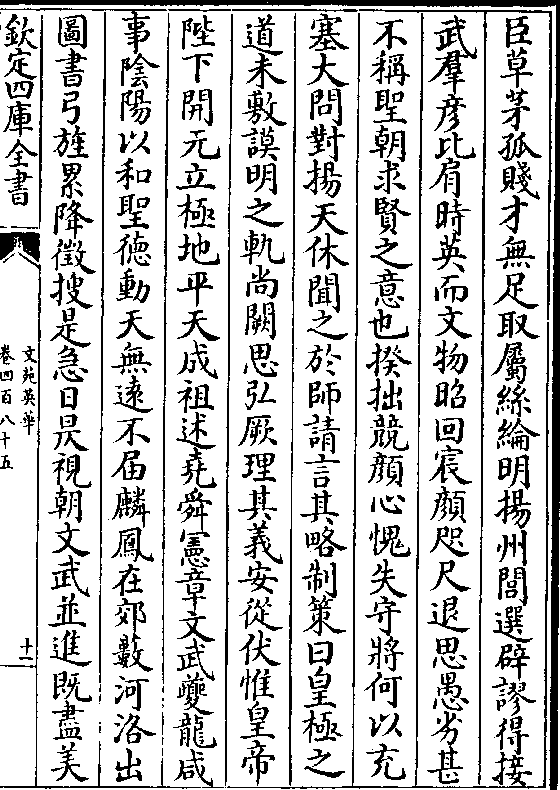 臣草茅孤賤才無足取屬絲綸明揚州閭選辟謬得接
武羣彦比肩時英而文物昭回宸顔咫尺退思愚劣甚
不稱聖朝求賢之意也揆拙競顔心愧失守將何以充
塞大問對揚天休聞之於師請言其略制策曰皇極之
道未敷謨明之軌尚闕思弘厥理其義安從伏惟皇帝
陛下開元立極地平天成祖述堯舜憲章文武夔龍咸
事陰陽以和聖德動天無遠不届麟鳳在郊藪河洛出
圖書弓旌累降徵搜是急日昃視朝文武並進既盡美
欽定四庫全書
文苑英華
卷四百八十五
十一